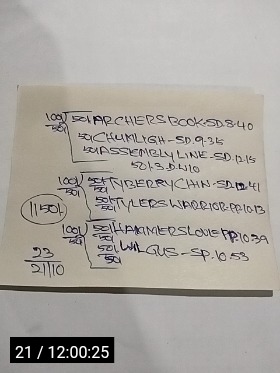 100/ 50/ARCHERSBOOK-SD.8.40
50/ 50/CHUMLIGH-SD.9.35
50/ASSEMBLYLINE-SD.12.15
50/.3.D.W10
100/ 50/TYBERRYCHIN-SD.12.41
50/ 50/TYLERSWARRIOR-PP.10.13
1150/-
100/ 50/HAMMERSLOVE PP.10.39
50/ 50/WILGUS-SP.10.53
50/
23
21/10
21 / 12:00:25